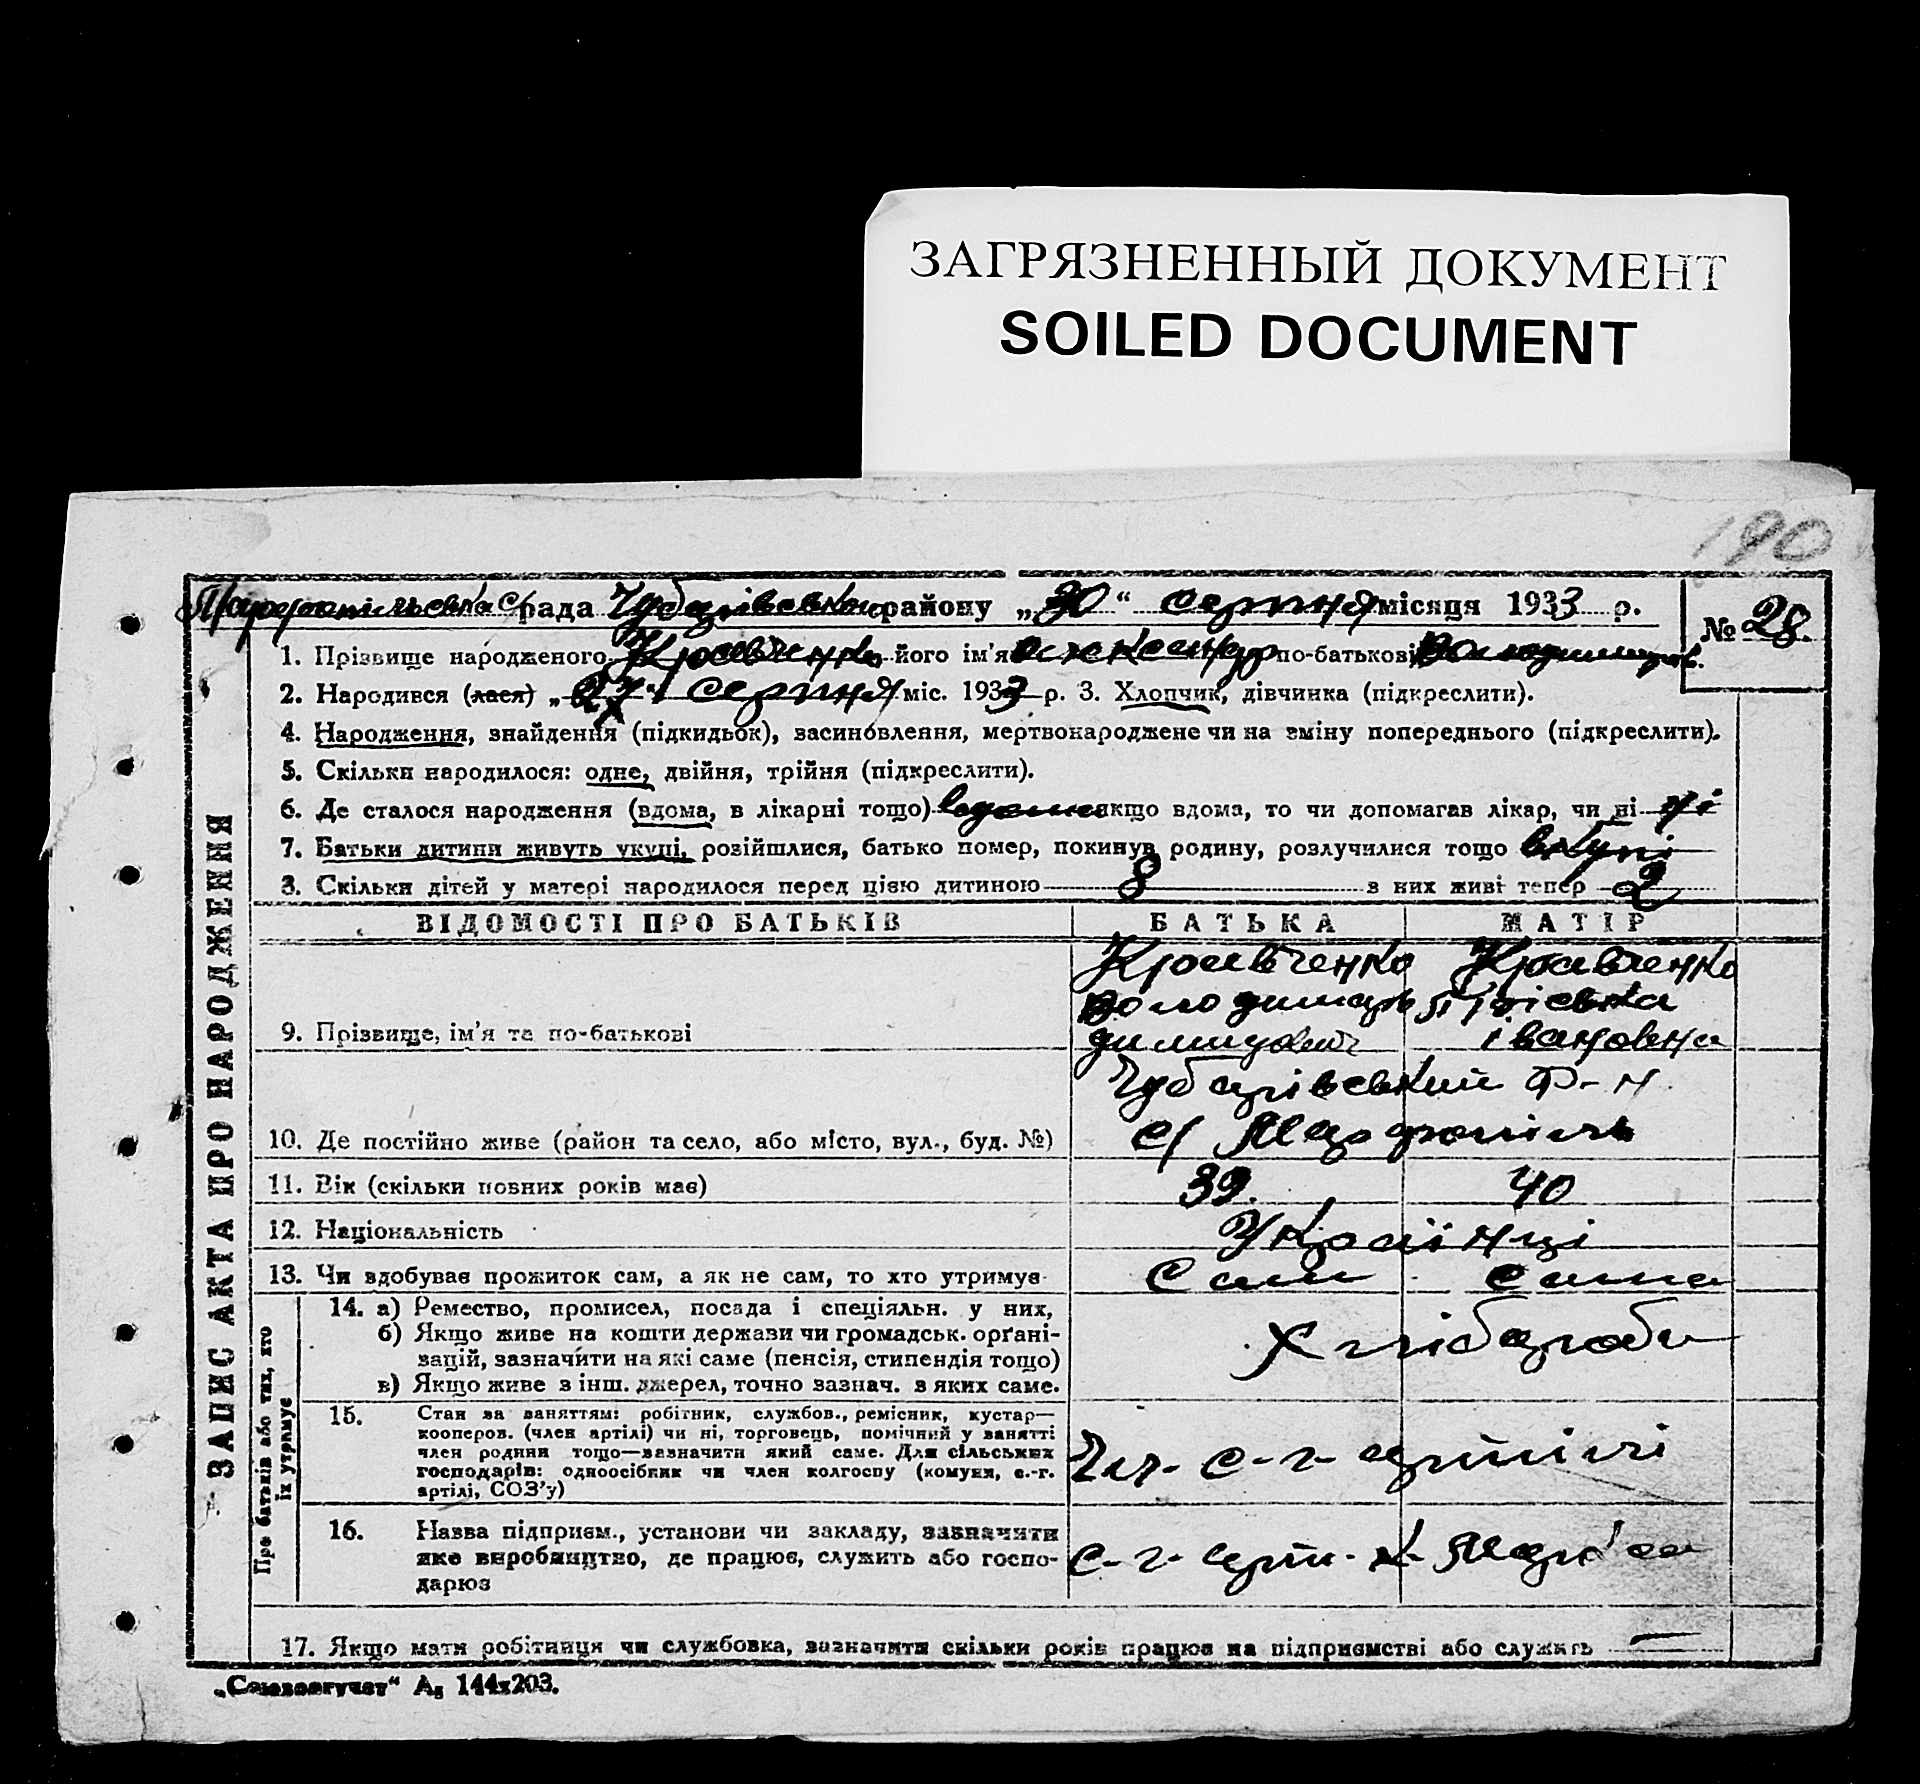 ЗАГРЯЗНЕННЫЙ ДОКУМЕНТ
SOILED DOCUMENT
190
рада Чубарівського району „30“ серпня місяця 1933 р.
№ 28.
1. Прізвище народженого Кравченко його ім'я Олександр по-батькові Володимиров.
2. Народився (лася) „27“ серпня міс. 1933 р. 3. Хлопчик, дівчинка (підкреслити).
4. Народження, знайдення (підкидьок), засиновлення, мертвонароджене чи на зміну попереднього (підкреслити).
5. Скільки народилося: одне, двійня, трійня (підкреслити).
6. Де сталося народження (вдома, в лікарні тощо) вдома якщо вдома, то чи допомагав лікар, чи ні ні
7. Батьки дитини живуть укупі, розійшлися, батько помер, покинув родину, розлучилися тощо вкупі
8. Скільки дітей у матері народилося перед цією дитиною 8 з них живі тепер 2
ЗАПИС АКТА ПРО НАРОДЖЕННЯ
ВІДОМОСТІ ПРО БАТЬКІВ БАТЬКА МАТІР
Кравченко Кравченко
Володимир
9. Прізвище, ім'я та по-батькові Івановна
Чубарівський Р-н
10. Де постійно живе (район та село, або місто, вул., буд. №) с/
11. Вік (скільки повних років має) 39. 40
12. Національність Українці
13. Чи здобуває прожиток сам, а як не сам, то хто утримує Сам Сама
Про батьків або тих, хто їх утримує
14. а) Ремество, промисел, посада і спеціяльн. у них,
б) Якщо живе на кошти держави чи громадськ. орґані-
зацій, зазначити на які саме (пенсія, стипендія тощо)
в) Якщо живе з інш. джерел, точно зазнач. з яких саме.
Хлібароби
15. Стан за заняттям: робітник, службов., ремісник, кустар—
кооперов. (член артілі) чи ні, торговець, помічний у занятті
член родини тощо—зазначити який саме. Для сільських
господарів: одноосібник чи член колгоспу (комуни, с.-г.
артілі, СОЗ'у)
Чл. с-г артілі
16. Назва підприєм., установи чи закладу, зазначити
яке виробництво, де працює, служить або госпо-
дарює
с-г арт. К. Маркса
17. Якщо мати робітниця чи службовка, зазначити скільки років працює на підприємстві або служить —
„Союзоргучет“ А₅ 144х203.